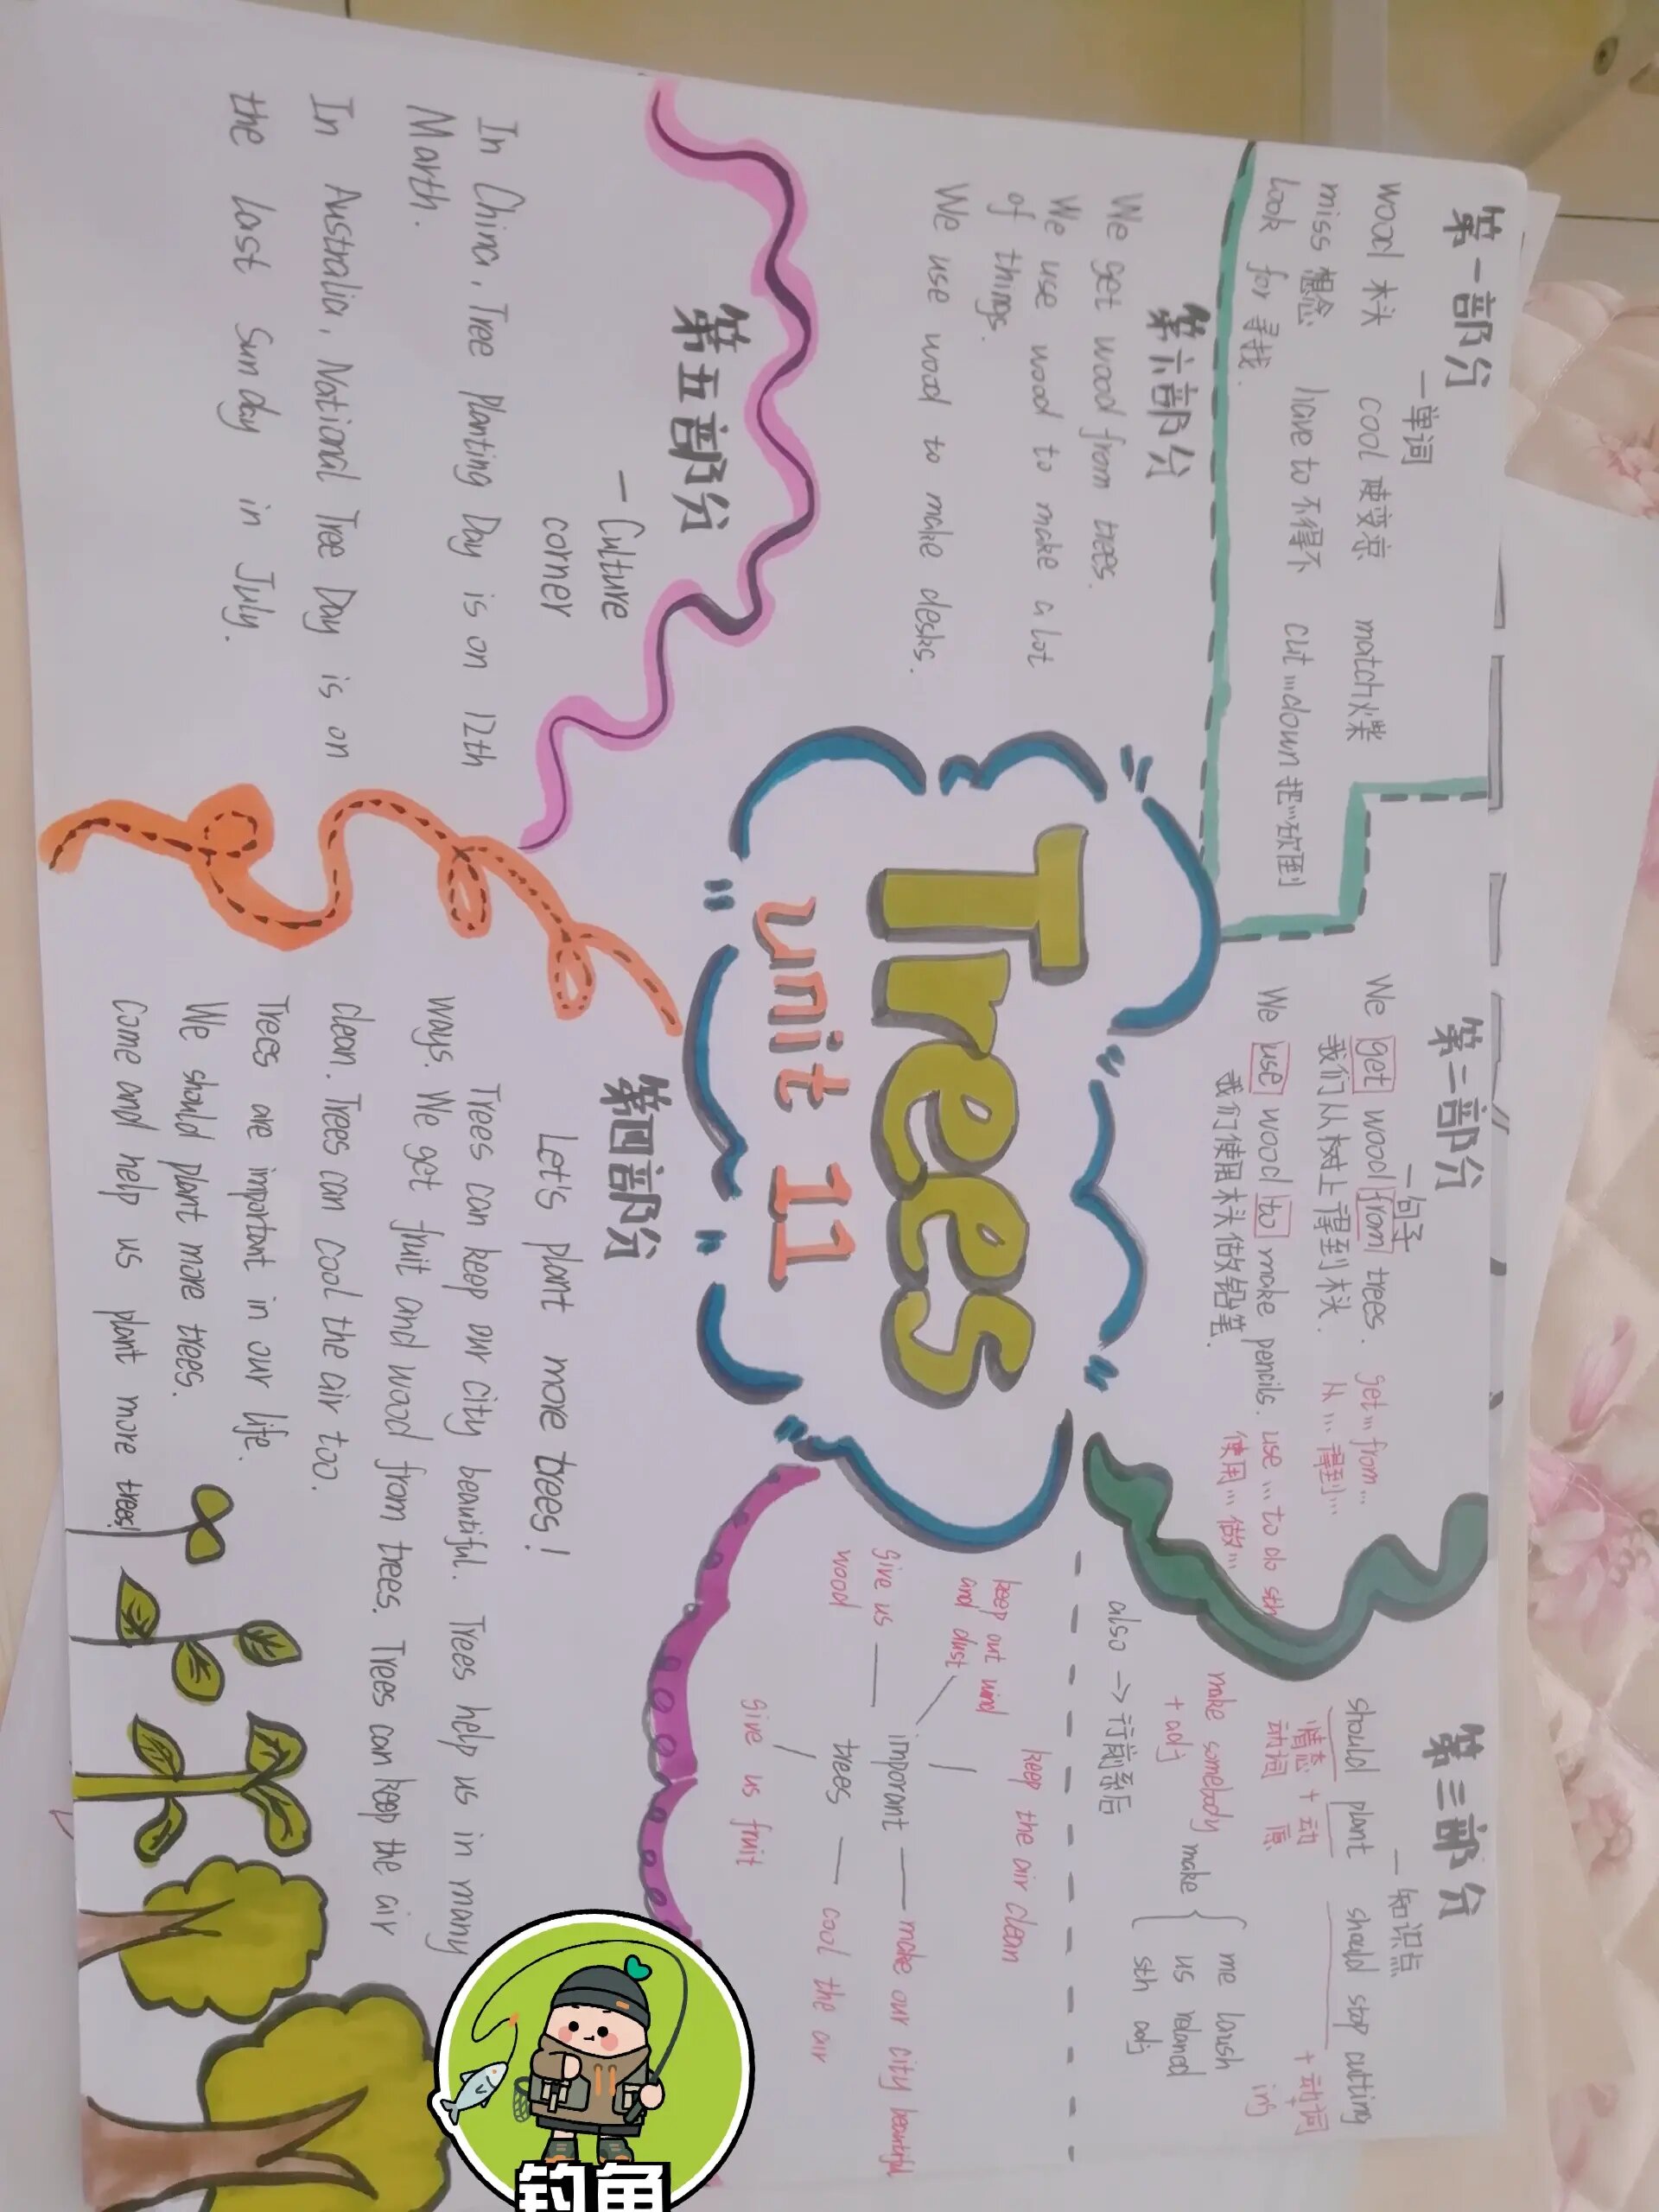 第一部分
一单词
wood 木头 cool 使变凉 match 火柴
miss 想念 have to 不得不 cut…down 把…砍到
look for 寻找.
第二部分
一句子
We get wood from trees. get…from…
我们从树上得到木头. 从…得到…
We use wood to make pencils. use…to do sth
我们使用木头做铅笔. 使用…做…
第三部分
一知识点
should plant should stop cutting
情态 + 动 + 动词
动词 原 ing
make somebody
+ adj
make { me laugh
us relaxed
sth adj
also → 行前系后
keep the air clean
keep out wind
and dust
give us
wood
imporant — make our city beautiful
trees — cool the air
give us fruit
Trees
unit 11
第四部分
Let's plant more trees!
Trees can keep our city beautiful. Trees help us in many
ways. We get fruit and wood from trees. Trees can keep the air
clean. Trees can cool the air too.
Trees are important in our life.
We should plant more trees.
Come and help us plant more trees!
第五部分
— Culture
corner
In China, Tree Planting Day is on 12th
Marth.
In Australia, National Tree Day is on
the last Sunday in July.
第六部分
We get wood from trees.
We use wood to make a lot
of things.
We use wood to make desks.
钓鱼